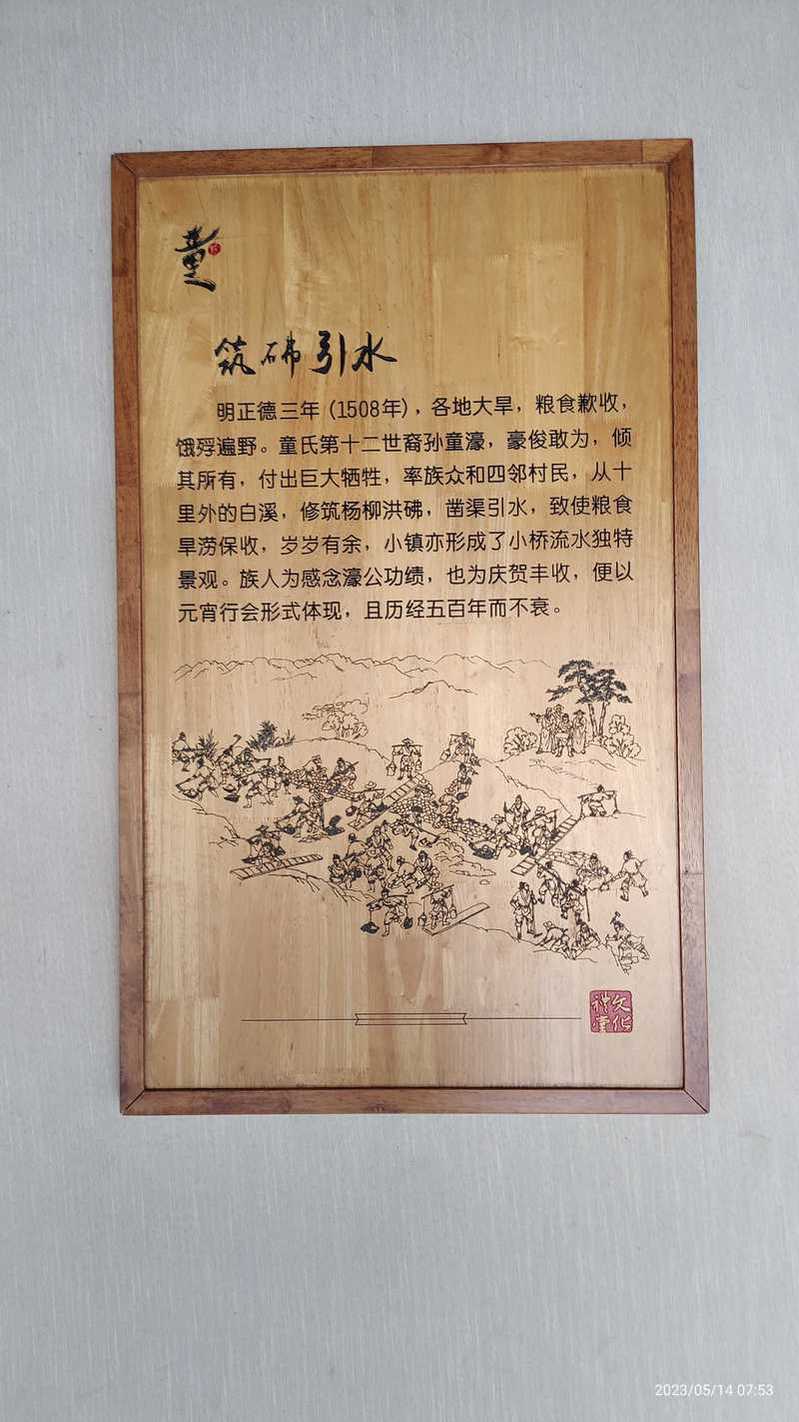 童
筑砩引水
明正德三年(1508年)，各地大旱，粮食歉收，
饿殍遍野。童氏第十二世裔孙童濠，豪俊敢为，倾
其所有，付出巨大牺牲，率族众和四邻村民，从十
里外的白溪，修筑杨柳洪砩，凿渠引水，致使粮食
旱涝保收，岁岁有余，小镇亦形成了小桥流水独特
景观。族人为感念濠公功绩，也为庆贺丰收，便以
元宵行会形式体现，且历经五百年而不衰。
文化
礼堂
2023/05/14 07:53